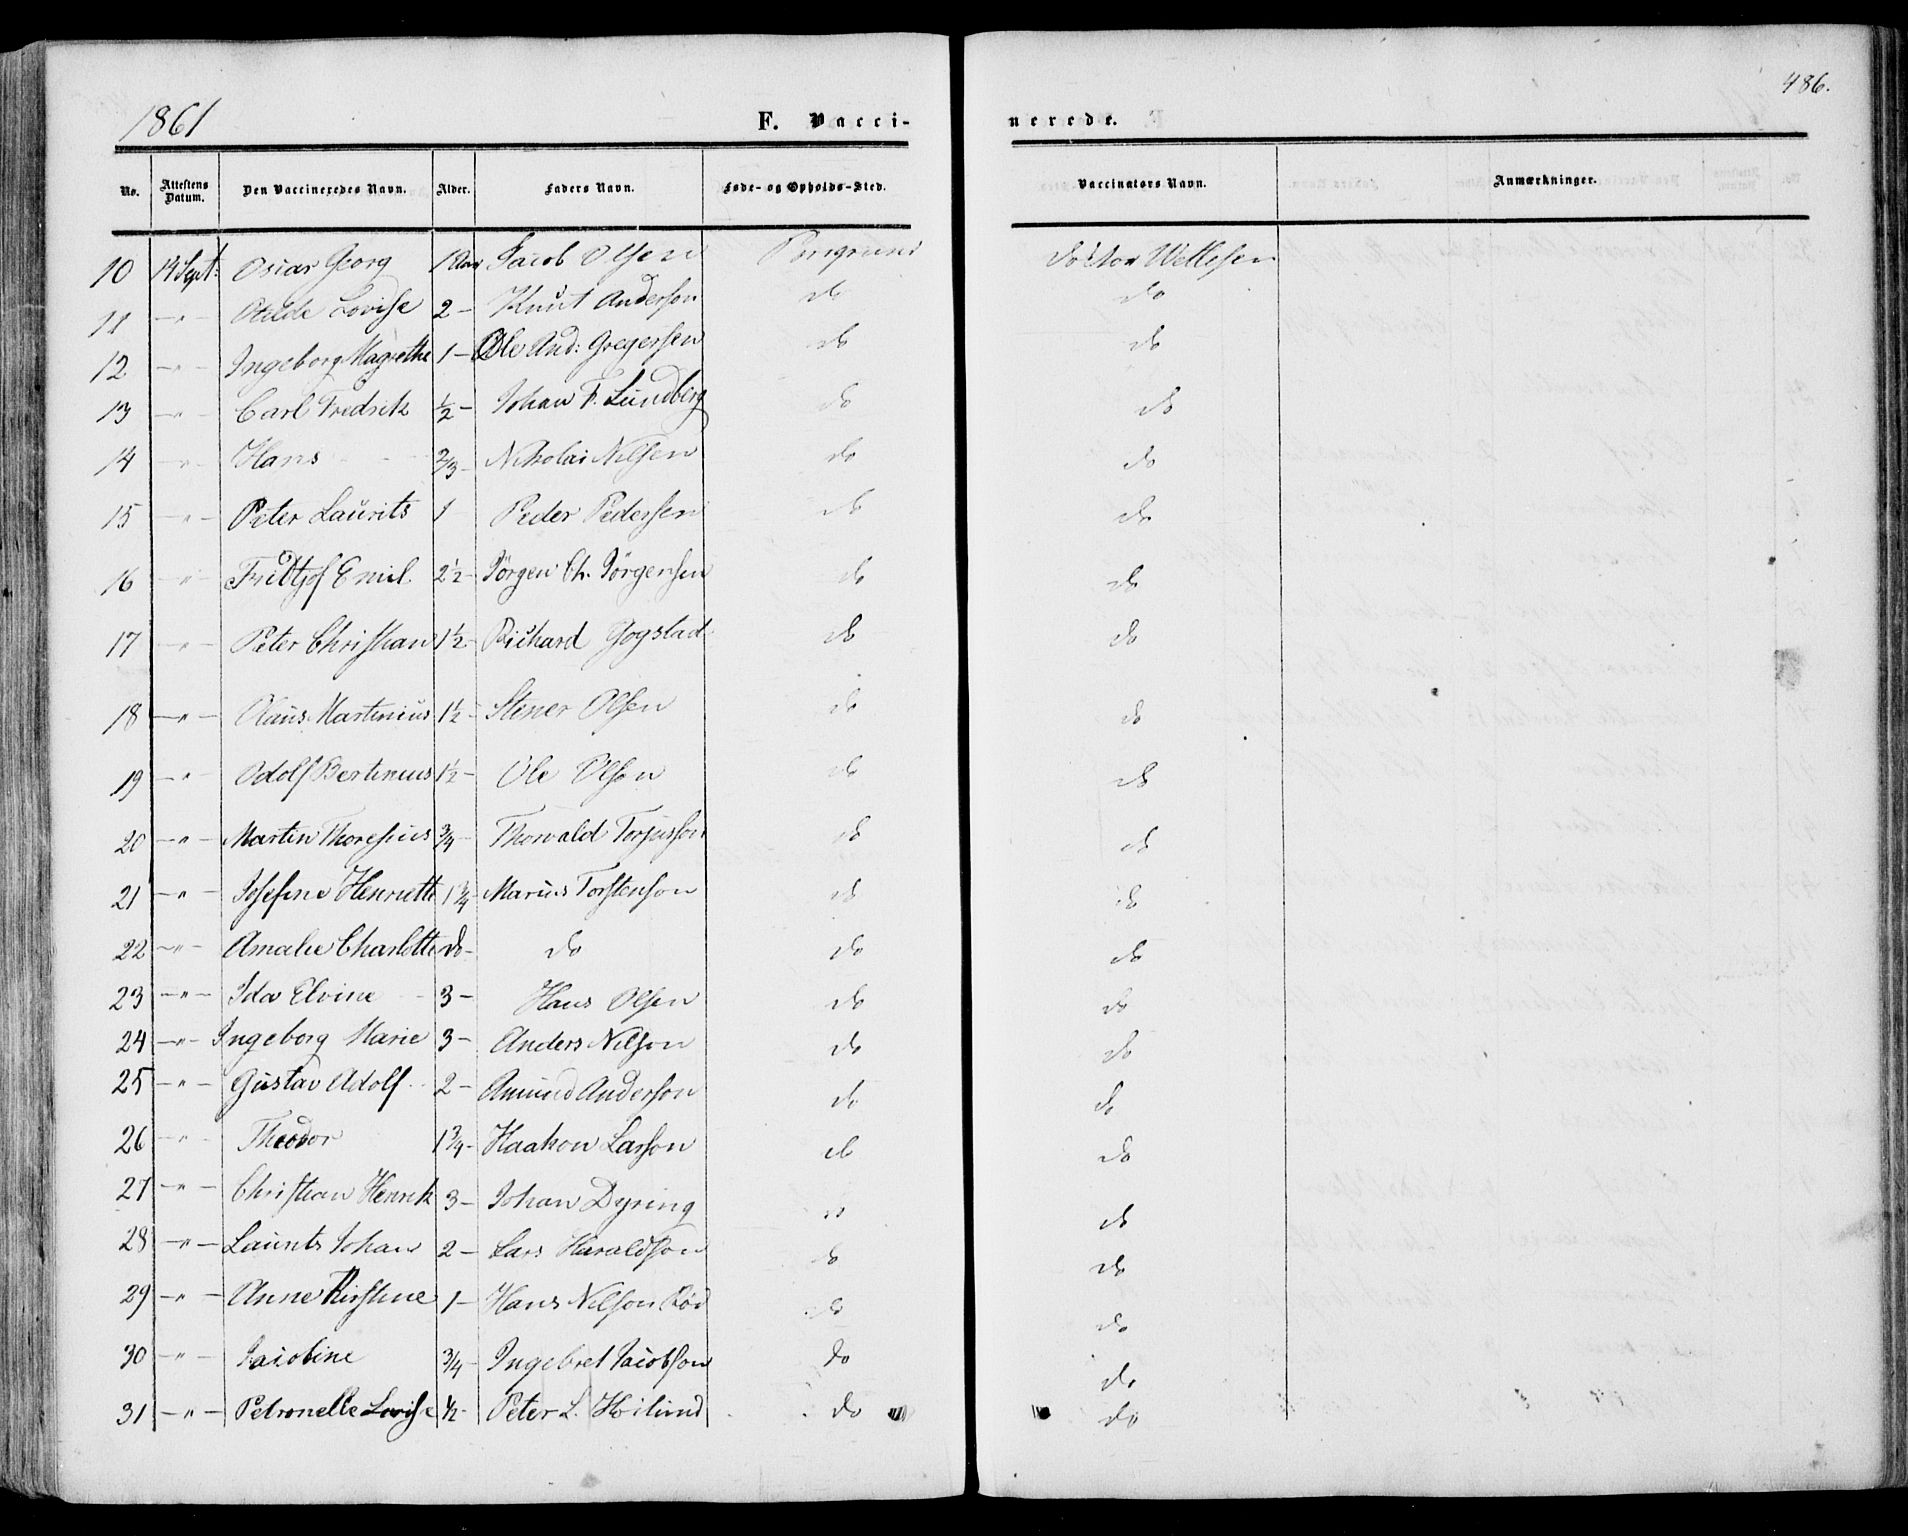 1861
486.
F. Vaccinerede.
No. | Attestens Datum. | Den Vaccineredes Navn. | Alder. | Faders Navn. | Føde- og Opholds-Sted. | Vaccinators Navn. | Anmærkninger.
10 | 14 Sept: | Oscar Georg | 1 Aar | Jacob Olsen | Porsgrund | Doctor Wettesen
11 | —"— | Otilde Lovise | 2 — | Knut Anderson | do | do
12 | —"— | Ingeborg Magrethe | 1 — | Ole And: Gregersen | do | do
13 | —"— | Carl Fredrik | ½ — | Johan F. Lundberg | do | do
14 | —"— | Hans | 2/3 — | Nikolai Nilsen | do | do
15 | —"— | Peter Laurits | 1 | Peder Pedersen | do | do
16 | —"— | Fridtjof Emil. | 2½ — | Jörgen Ch. Jörgensen | do | do
17 | —"— | Peter Christian | 1½ — | Richard Gogstad | do | do
18 | —"— | Klaus Martinius | 1½ — | Stener Olsen | do | do
19 | —"— | Adolf Bertinius | 1½ — | Ole Olsen | do | do
20 | —"— | Martin Thoresius | ¾ — | Thorvald Torjusson | do | do
21 | —"— | Josefine Henriette | 1¾ — | Marius Torstenson | do | do
22 | —"— | Amalie Charlotte | do — | do | do | do
23 | —"— | Ida Elvine | 3 — | Hans Olsen | do | do
24 | —"— | Ingeborg Marie | 3 — | Anders Nilson | do | do
25 | —"— | Gustav Adolf | 2 — | Amund Anderson | do | do
26 | —"— | Theodor | 1¾ — | Haakon Larson | do | do
27 | —"— | Christian Henrik | 3 — | Johan Dyring | do | do
28 | —"— | Laurits Johan | 2 — | Lars Haraldson | do | do
29 | —"— | Anne Kirstine | 1 — | Hans Nilson Röd | do | do
30 | —"— | Jacobine | ¾ — | Ingebret Jacobson | do | do
31 | —"— | Petronelle Lovise | ½ — | Peter L. | do | do